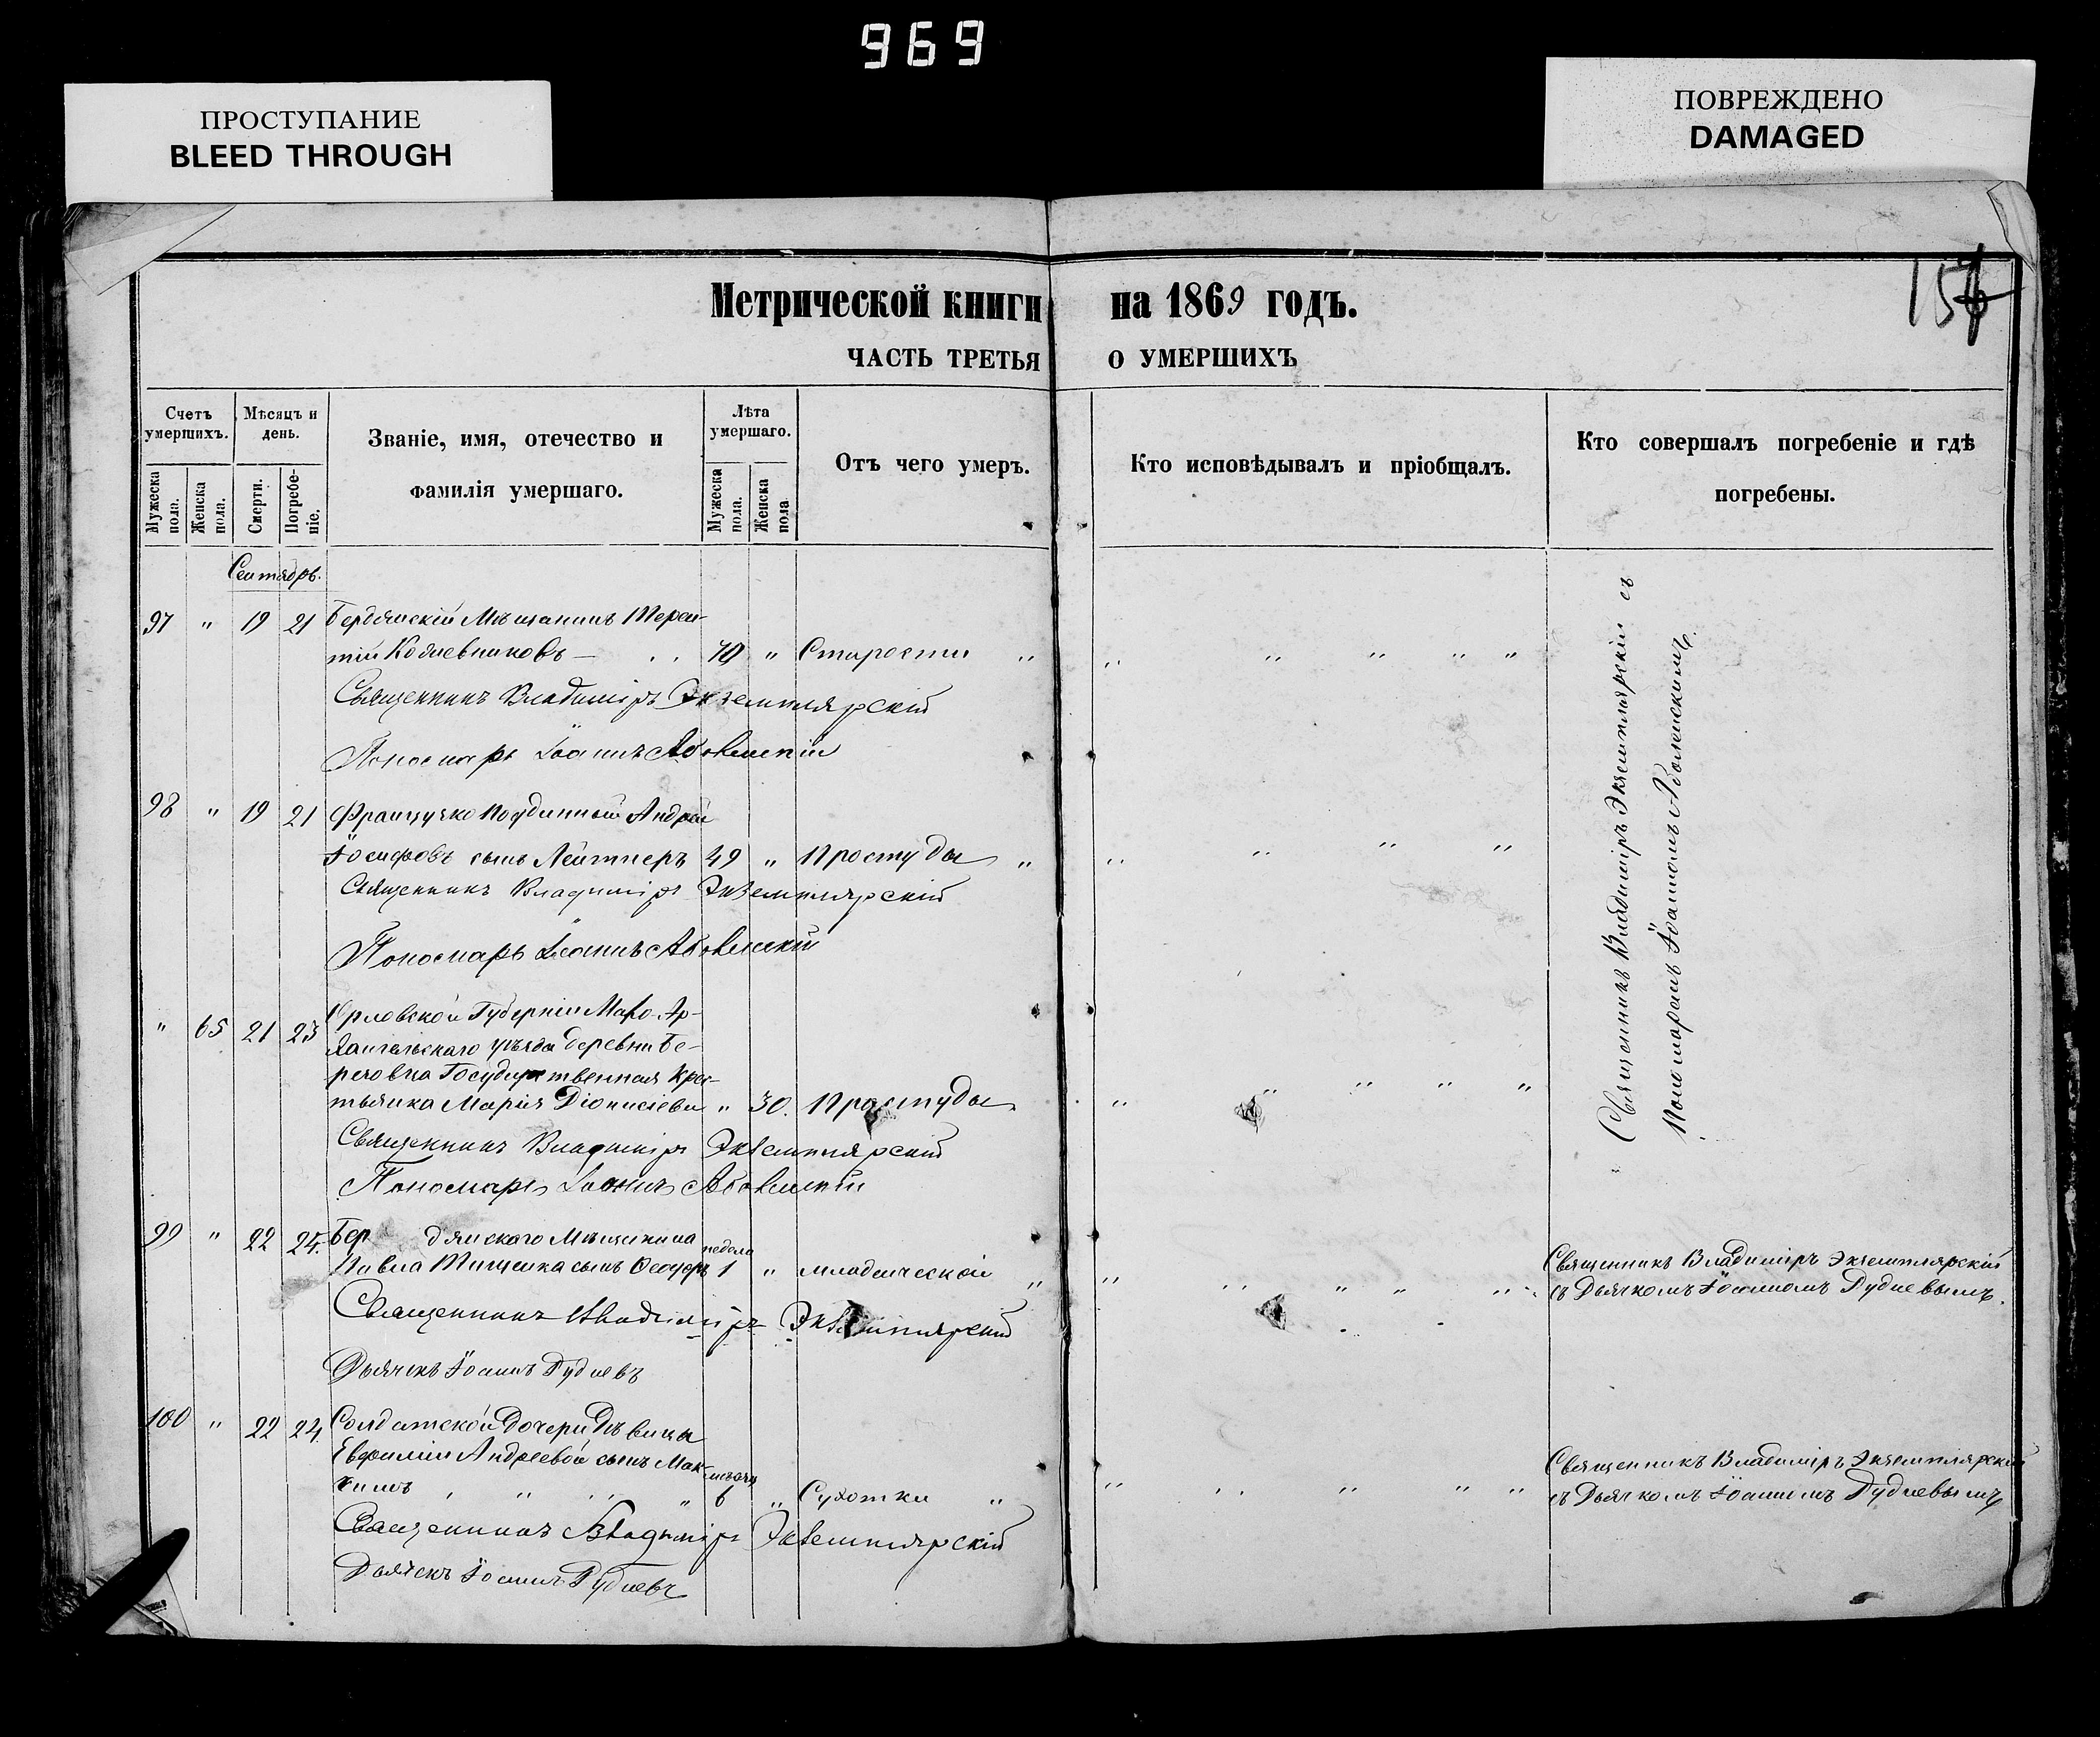 969
ПРОСТУПАНИЕ
BLEED THROUGH
ПОВРЕЖДЕНО
DAMAGED
Метрической книги на 1869 годъ.
ЧАСТЬ ТРЕТЬЯ О УМЕРШИХЪ
Счетъ умершихъ.
Мужеска пола.
Женска пола.
Мѣсяцъ и день.
Смерти.
Погребеніе.
Званіе, имя, отечество и
фамилія умершаго.
Лѣта умершаго.
Мужеска пола.
Женска пола
Отъ чего умеръ.
Кто исповѣдывалъ и пріобщалъ.
Кто совершалъ погребеніе и гдѣ
погребены.
Сентябрь.
97 " 19 21 Бердянскій Мѣщанинъ Терен-
тій Кожевниковъ — 70 " Старости "
Священникъ Владиміръ Экземплярскій
Пономарь Іоаннъ
98 " 19 21 Французко Подданный Андрей
Іосифовъ сынъ Лейтнеръ 49 " Простуды "
Священникъ Владиміръ Экземплярскій
Пономарь Іоаннъ
" 65 21 23 Орловской Губерніи Мало-Ар-
хангельскаго уѣзда деревни Бе-
Государственная Крес-
тьянка Марія Діонисіева " 30. Простуды
Священникъ Владиміръ Экземплярскій
Пономарь Іоаннъ
Священникъ Владиміръ Экземплярскій съ
Пономаремъ Іоанномъ
99 " 22 24. Бердянскаго Мѣщанина недѣля
Павла Тищенка сынъ Ѳеодоръ 1 " младенческой "
Священникъ Владиміръ Экземплярскій
Дьячекъ Іоаннъ Рудневъ
Священникъ Владиміръ Экземплярскій
съ Дьячкомъ Іоанномъ Рудневымъ.
100 " 22 24. Солдатской Дочери Дѣвицы
Евфиміи Андреевой сынъ Мак-
симъ 6 " Сухотки "
Священникъ Владиміръ Экземплярскій
Дьячекъ Іоаннъ Рудневъ
Священникъ Владиміръ Экземплярскій
съ Дьячкомъ Іоанномъ Рудневымъ